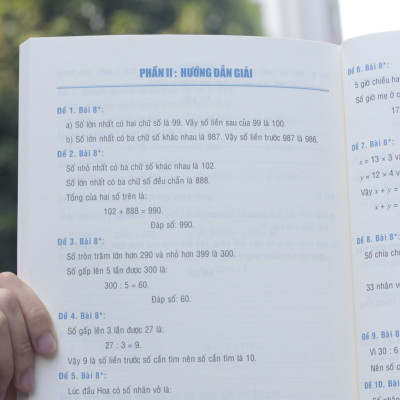 PHẦN II : HƯỚNG DẪN GIẢI
Đề 1. Bài 8*:
a) Số lớn nhất có hai chữ số là 99. Vậy số liền sau của 99 là 100.
b) Số lớn nhất có ba chữ số khác nhau là 987. Vậy số liền trước 987 là 986.
Đề 2. Bài 8*:
Số nhỏ nhất có ba chữ số khác nhau là 102.
Số lớn nhất có ba chữ số đều chẵn là 888.
Tổng của hai số trên là:
102 + 888 = 990.
Đáp số: 990.
Đề 3. Bài 8*:
Số tròn trăm lớn hơn 290 và nhỏ hơn 399 là 300.
Số gấp lên 5 lần được 300 là:
300 : 5 = 60.
Đáp số: 60.
Đề 4. Bài 8*:
Số gấp lên 3 lần được 27 là:
27 : 3 = 9.
Vậy 9 là số liền trước số cần tìm nên số cần tìm là 10.
Đề 5. Bài 8*:
Lúc đầu Hoa có số nhãn vở là:
Đề 6. Bài 8*:
5 giờ chiều ha
Số giờ mẹ ở c
17
Đề 7. Bài 8*:
x = 13 × 3 v
y = 12 × 4 v
Vậy x + y =
x + y =
Đề 8. Bài 8*:
Số chia cho
33 nhân v
Đề 9. Bài 8
Vì 30 : 6
Nên số c
Đề 10. Bài